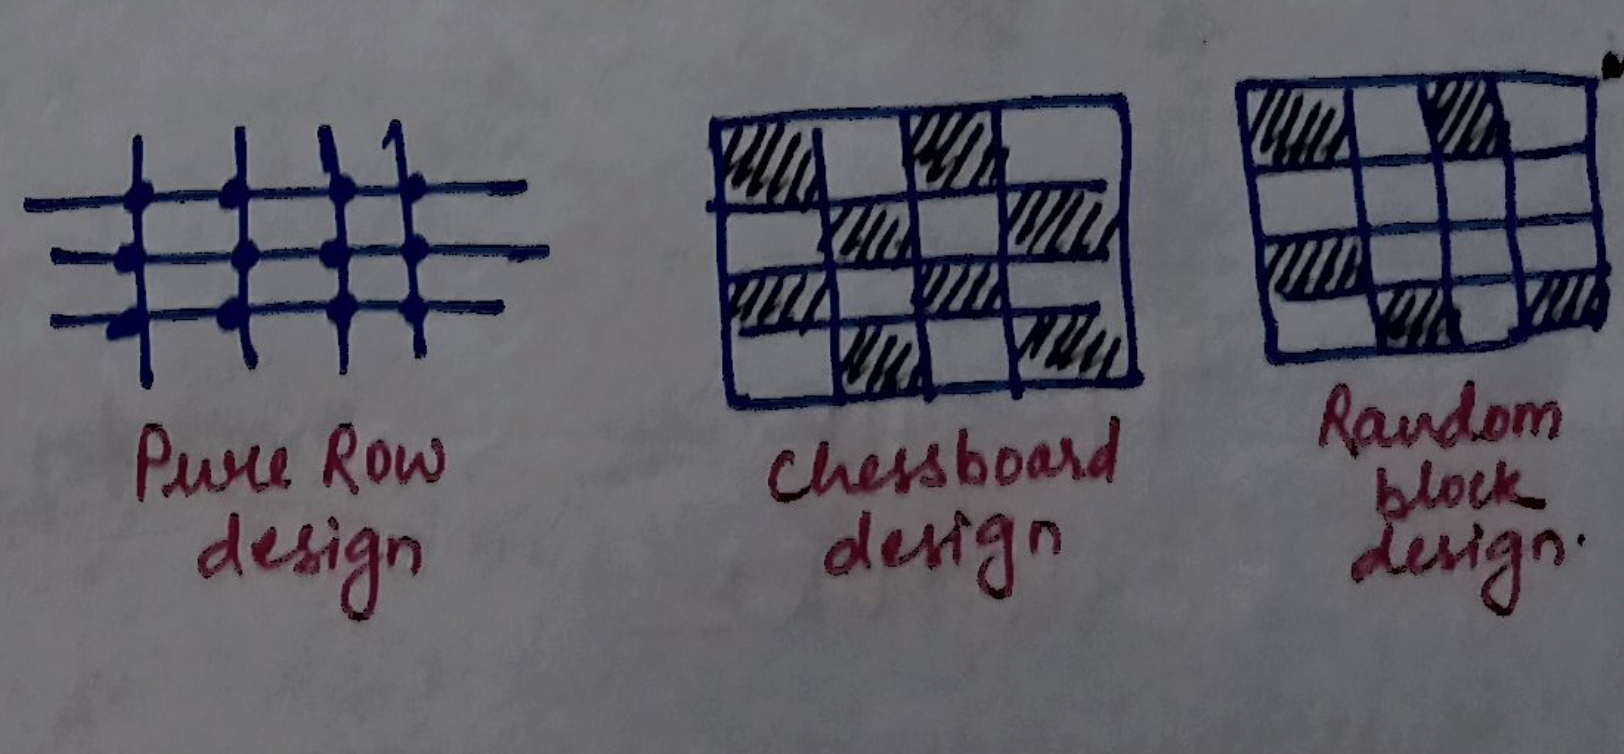 Pure Row
design
Chessboard
design
Random
block
design.